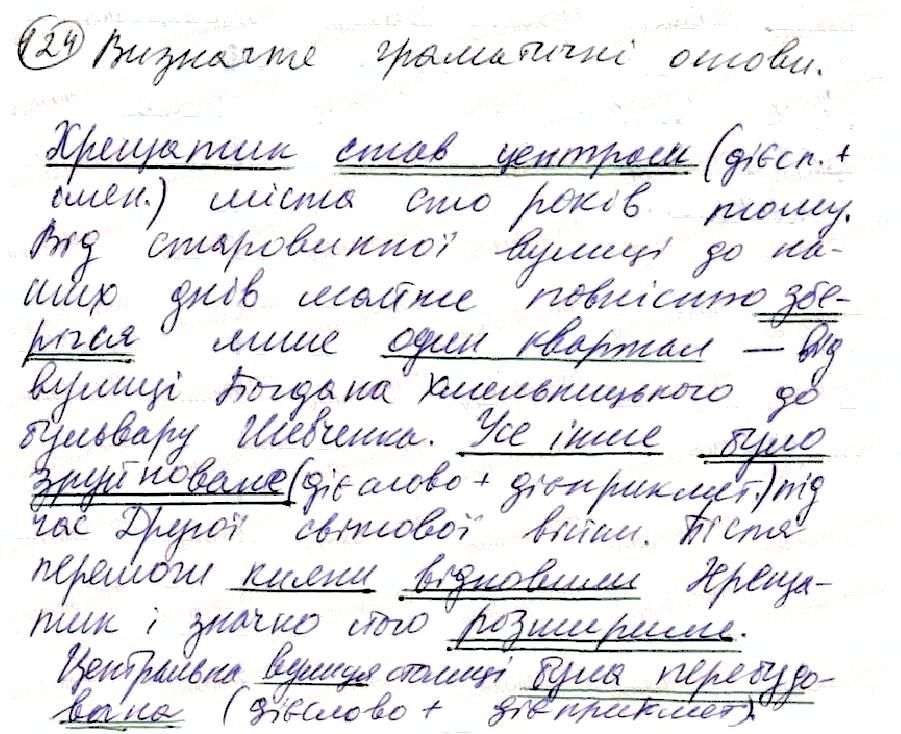 124 Визначте граматичні основи.
Хрещатик став центром (дієсл. +
імен.) міста сто років тому.
Від старовинної вулиці до на-
ших днів майже повністю збе-
рігся лише один квартал — від
вулиці Богдана Хмельницького до
бульвару Шевченка. Усе інше було
зруйноване (дієслово + дієприкмет.) під
час Другої світової війни. Після
перемоги кияни відновили Хреща-
тик і значно його розширили.
Центральна вулиця столиці була перебудо-
вана (дієслово + дієприкмет).